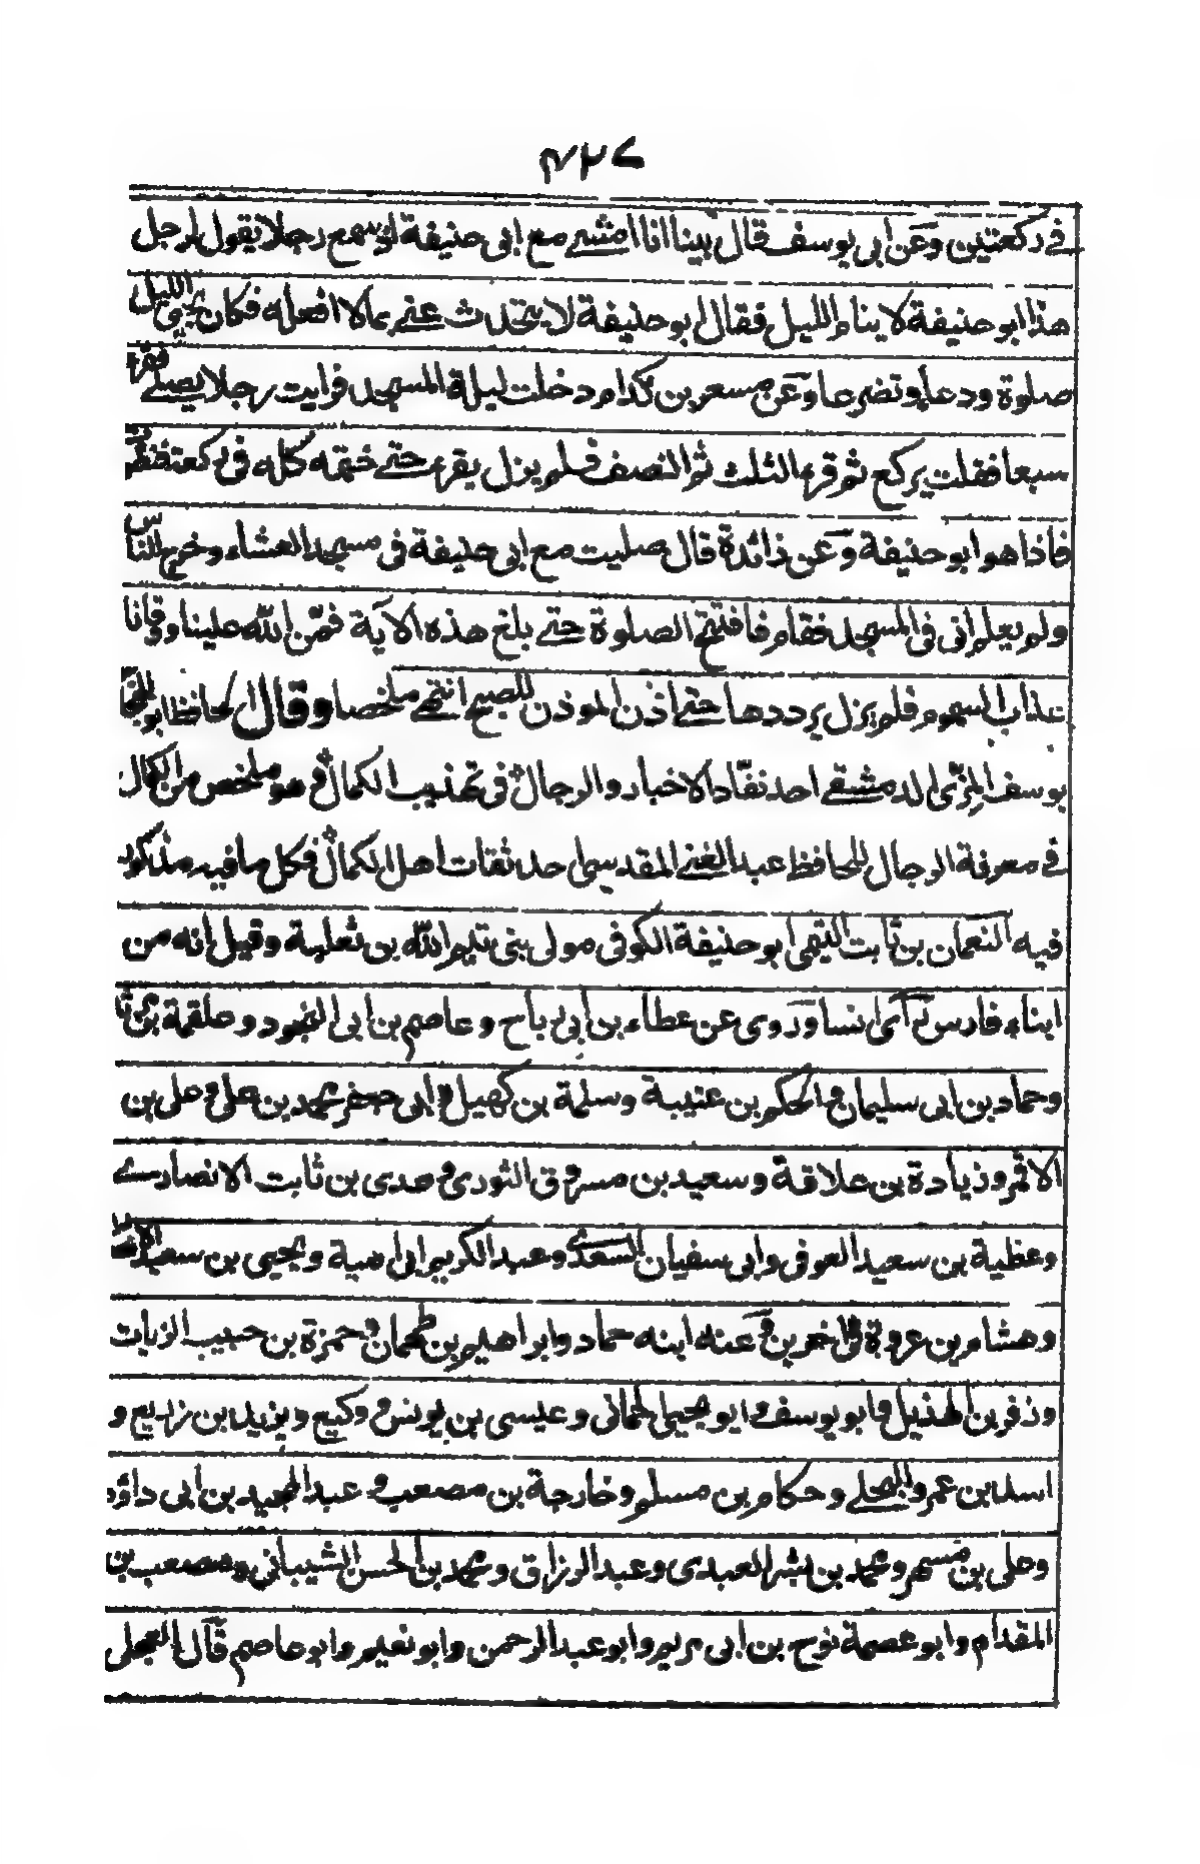 ٤٢٧
في ركعتين وعن ابى يوسف قال بينا انا امشي مع ابى حنيفة اذ سمع رجلا يقول لرجل
هذا ابو حنيفة لا ينام الليل فقال ابو حنيفة لا يتحدث عني بما لا افعله فكان يحيى الليل
صلوة ودعاء وتضرعا وعن مسعر بن كدام دخلت ليلة المسجد فرايت رجلا يصلي فقرء
سبعا فقلت يركع ثم قرء الثلث ثم النصف فلم يزل يقرء حتى ختمه كله فى ركعة فنظرت
فاذا هو ابو حنيفة وعن زائدة قال صليت مع ابى حنيفة فى مسجد العشاء وخرج الناس
ولم يعلم انى فى المسجد فقام فافتتح الصلوة حتى بلغ هذه الآية فمنّ الله علينا ووقانا
عذاب السموم فلم يزل يرددها حتى اذن الموذن للصبح انتهى ملخصا وقال الحافظ ابو الحجاج
يوسف المزّى الدمشقي احد نقّاد الاخبار والرجال فى تهذيب الكمال وهو ملخص من الكمال
في معرفة الرجال للحافظ عبد الغني المقدسى احد ثقات اهل الكمال فكل ما فيه مذكور
فيه النعمان بن ثابت التيمى ابو حنيفة الكوفى مولى بنى تيم الله بن ثعلبة وقيل انه من
ابناء فارس رآى انسا وروى عن عطاء بن ابى رباح وعاصم بن ابى النجود وعلقمة بن مرثد
وحماد بن ابى سليمان والحكم بن عتيبة وسلمة بن كهيل وابى جعفر محمد بن على وعلى بن
الاقمر وزيادة بن علاقة وسعيد بن مسروق الثورى وعدى بن ثابت الانصاري
وعطية بن سعيد العوفى وابى سفيان السعدي وعبد الكريم ابى امية ويحيى بن سعيد الانصارى
وهشام بن عروة فى آخرين وعنه ابنه حماد وابراهيم بن طهمان وحمزة بن حبيب الزيات
وزفر بن الهذيل وابو يوسف وابو يحيى الحمانى وعيسى بن يونس ووكيع ويزيد بن زريع و
اسد ابن عمرو البجلي وحكام بن مسلم وخارجة بن مصعب وعبد المجيد بن ابى داؤد
وعلى بن مسهر ومحمد بن بشر العبدى وعبد الرزاق ومحمد بن الحسن الشيبانى ومصعب بن
المقدام وابو عصمة نوح بن ابى مريم وابو عبد الرحمن وابو نعيم وابو عاصم قال العجلى